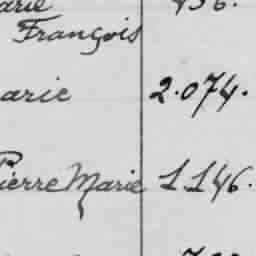 François
arie 2.074.
Pierre Marie 1.146.